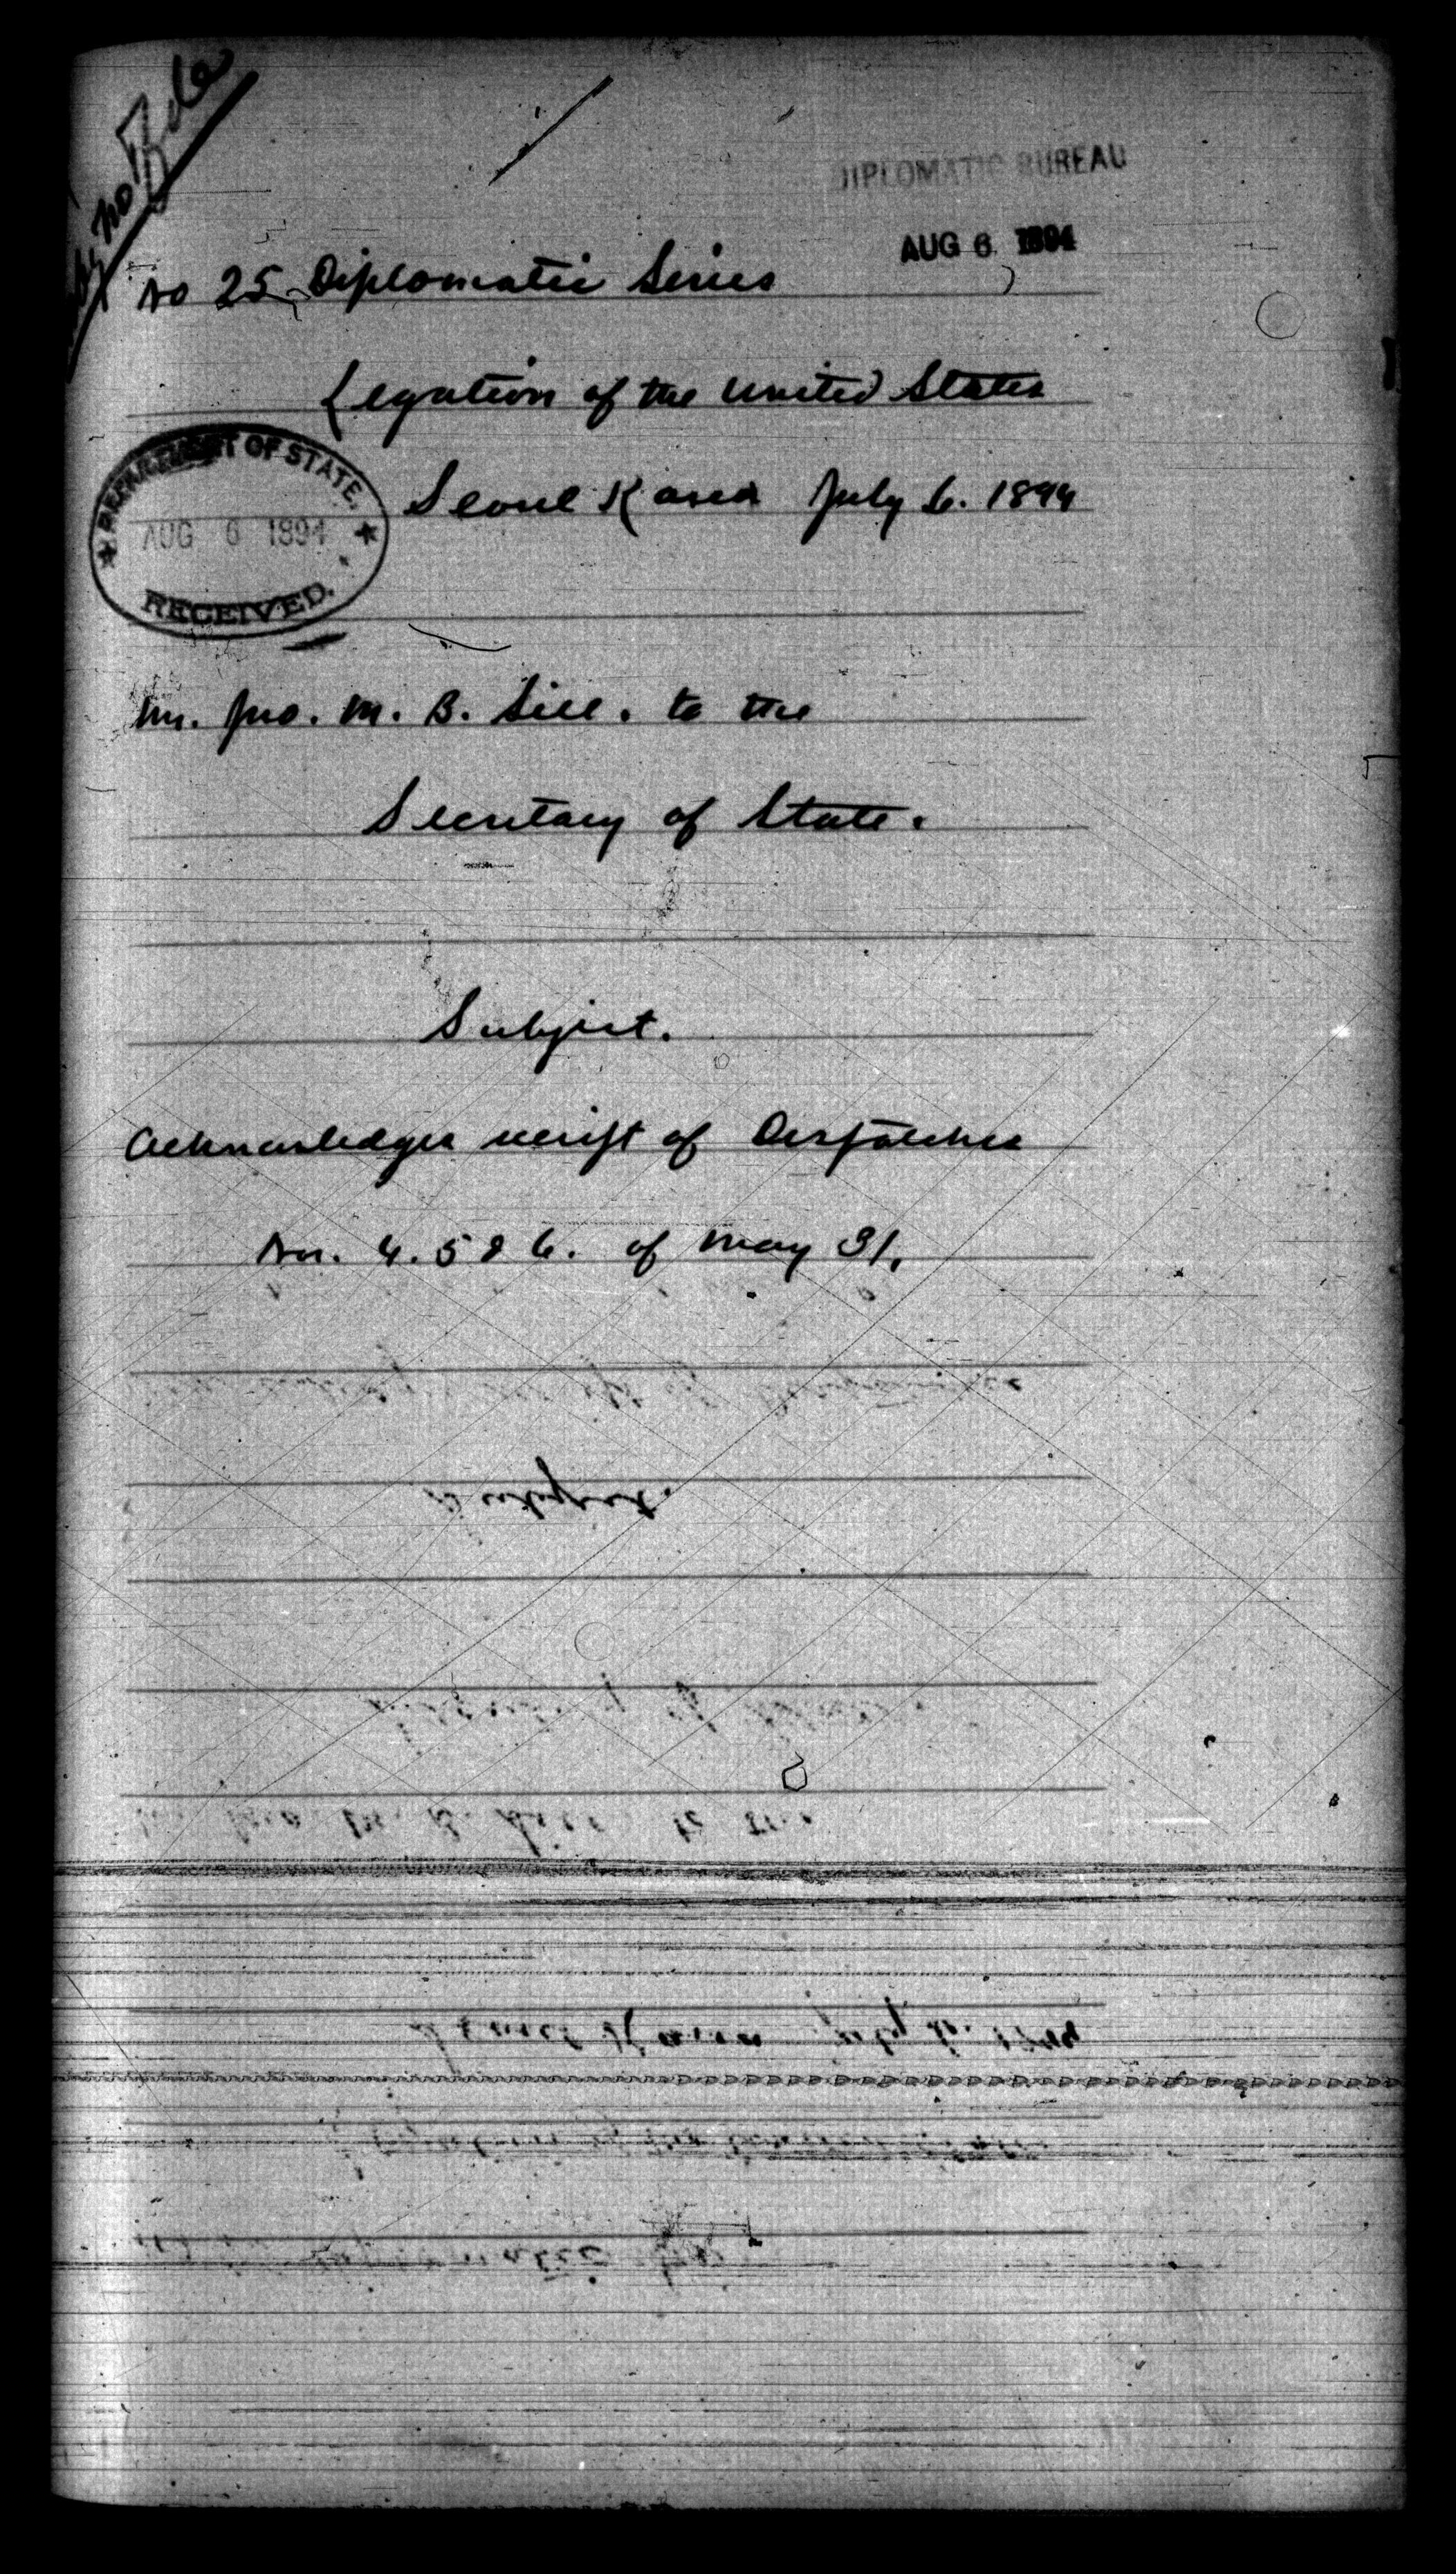 DIPLOMATIC BUREAU
AUG 6 1894
No 25 Diplomatic Series
Legation of the United States
Seoul Korea July 6. 1894
DEPARTMENT OF STATE.
AUG 6 1894
RECEIVED.
Mr. Jno. M. B. Sill. to the
Secretary of State.
Subject.
Acknowledges receipt of Despatches
Nos. 4. 5 & 6. of May 31.